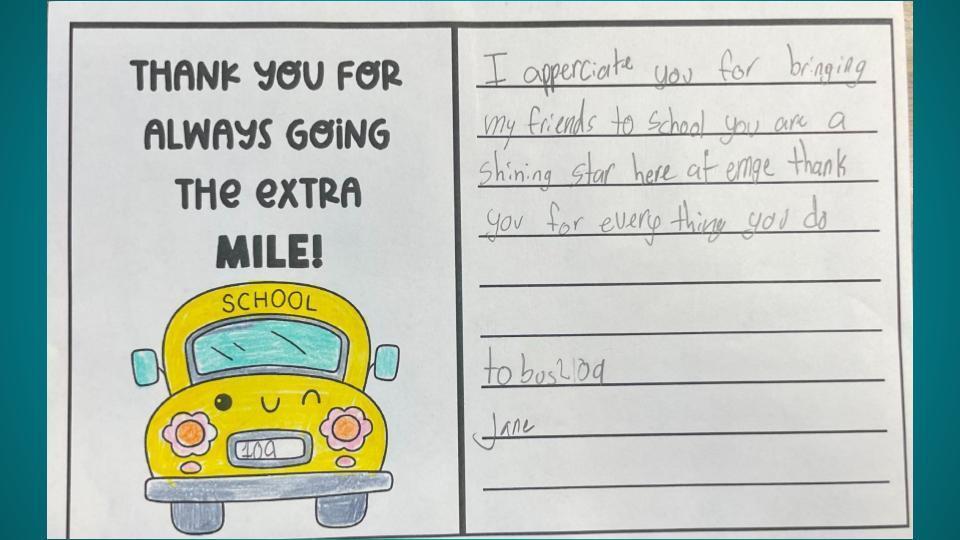 THANK YOU FOR
ALWAYS GOING
THE EXTRA
MILE!
SCHOOL
109
I apperciate you for bringing
my friends to school you are a
shining star here at emge thank
you for every thing you do
to bus
Jane